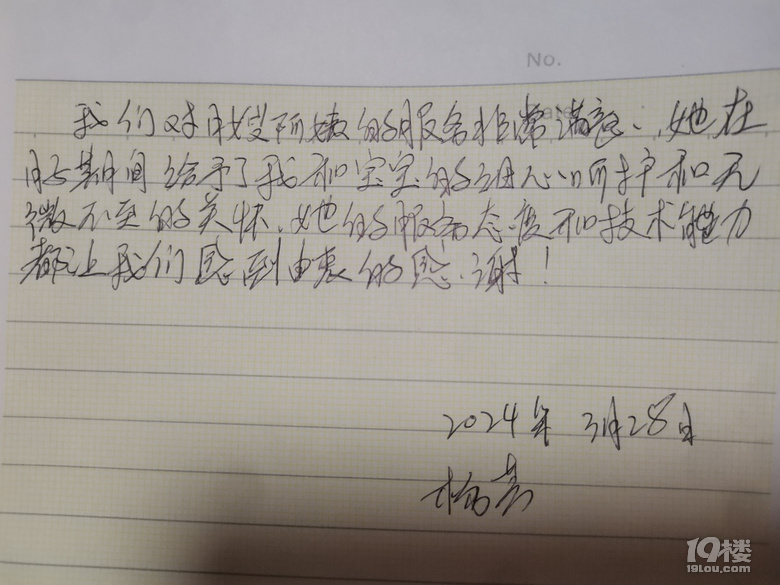 No.
我们对月嫂阿姨的服务非常满意、她在
月子期间给予了我和宝宝的细心呵护和无
微不至的关怀、她的服务态度和技术能力
都让我们感到由衷的感谢！
2024年 3月28日
杨
19楼
19lou.com